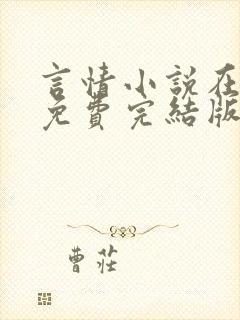 言情小說在
免費完結版
曹莊